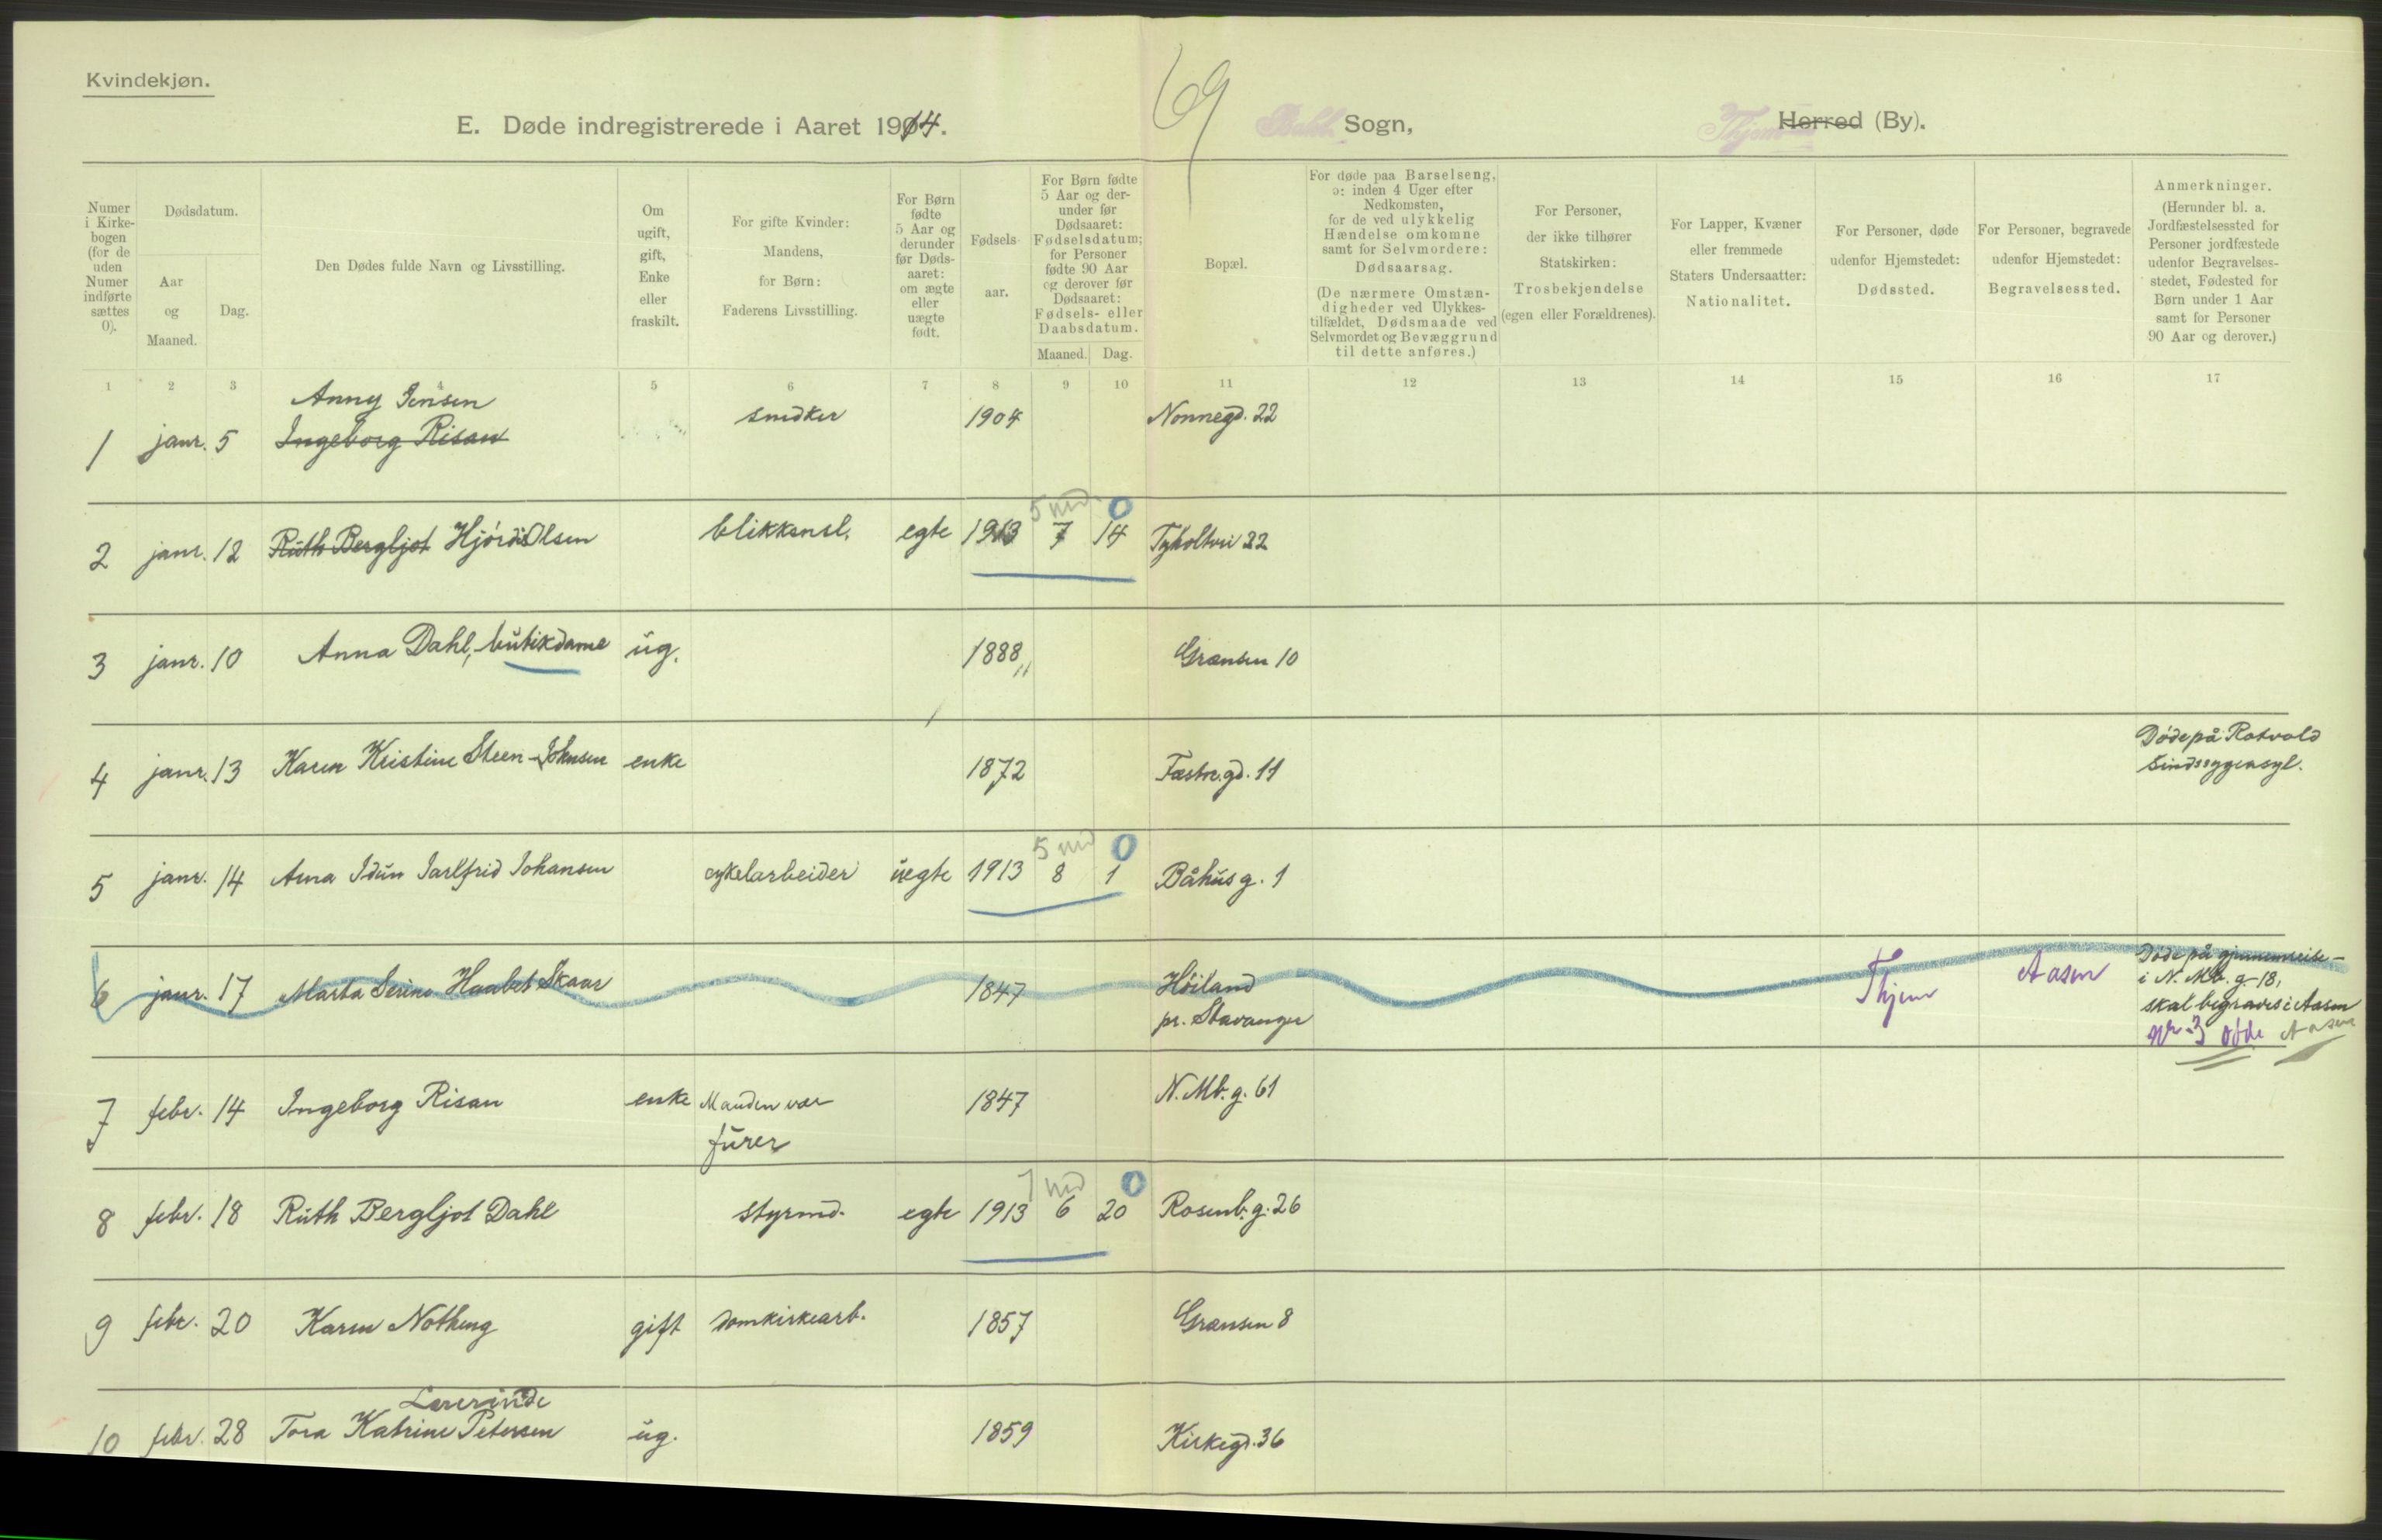 Kvindekjøn.
E. Døde indregistrerede i Aaret 1914.
69
Bakk. Sogn,
Thjem Herred (By).
Numer i Kirke-bogen (for de uden Numer indførte sættes 0).
Dødsdatum.
Aar og Maaned.
Dag.
Den Dødes fulde Navn og Livsstilling.
Om ugift, gift, Enke eller fraskilt.
For gifte Kvinder: Mandens, for Børn: Faderens Livsstilling.
For Børn fødte 5 Aar og derunder før Døds-aaret: om ægte eller uægte født.
Fødsels-aar.
For Børn fødte 5 Aar og der-under før Dødsaaret: Fødselsdatum; for Personer fødte 90 Aar og derover før Dødsaaret: Fødsels- eller Daabsdatum.
Maaned. Dag.
Bopæl.
For døde paa Barselseng, ɔ: inden 4 Uger efter Nedkomsten, for de ved ulykkelig Hændelse omkomne samt for Selvmordere: Dødsaarsag. (De nærmere Omstæn-digheder ved Ulykkes-tilfældet, Dødsmaade ved Selvmordet og Bevæggrund til dette anføres.)
For Personer, der ikke tilhører Statskirken: Trosbekjendelse (egen eller Forældrenes).
For Lapper, Kvæner eller fremmede Staters Undersaatter: Nationalitet.
For Personer, døde udenfor Hjemstedet: Dødssted.
For Personer, begravede udenfor Hjemstedet: Begravelsessted.
Anmerkninger. (Herunder bl. a. Jordfæstelsessted for Personer jordfæstede udenfor Begravelses-stedet, Fødested for Børn under 1 Aar samt for Personer 90 Aar og derover.)
1 2 3 4 5 6 7 8 9 10 11 12 13 14 15 16 17
Anny Jensen
1 janr. 5 Ingeborg Risan snedker 1904 Nonnegd. 22
5 md. 0
2 janr. 12 Ruth Bergljot Hjórdis Olsen blikkensl. egte 1913 7 14 Tyholtvei 22
3 janr. 10 Anna Dahl, butikdame ug. 1888 Grænsen 10
4 janr. 13 Karen Kristine Steen-Johnsen enke 1872 Fæstn.gd. 11 Døde på Rotvold
Sindssygeasyl.
5 md 0
5 janr. 14 Arna Idun Jarlfrid Johansen cykelarbeider uegte 1913 8 1 Båhus g. 1
6 janr. 17 Marta Serine Haabet Skaar 1847 Höiland Thjem Aasen Døde på gjennemreise-
pr. Stavanger i N. Mb. g. 18,
skal begraves i Aasen
Nr. 3 døde Aasen
7 febr. 14 Ingeborg Risan enke Manden var 1847 N. Mb. g. 61
furer
7 md 0
8 febr. 18 Ruth Bergljot Dahl styrmd. egte 1913 6 20 Rosenb. g. 26
9 febr. 20 Karen Notheng gift domkirkearb. 1857 Grænsen 8
Lærerinde
10 febr. 28 Tora Katrine Petersen ug. 1859 Kirkegd. 36